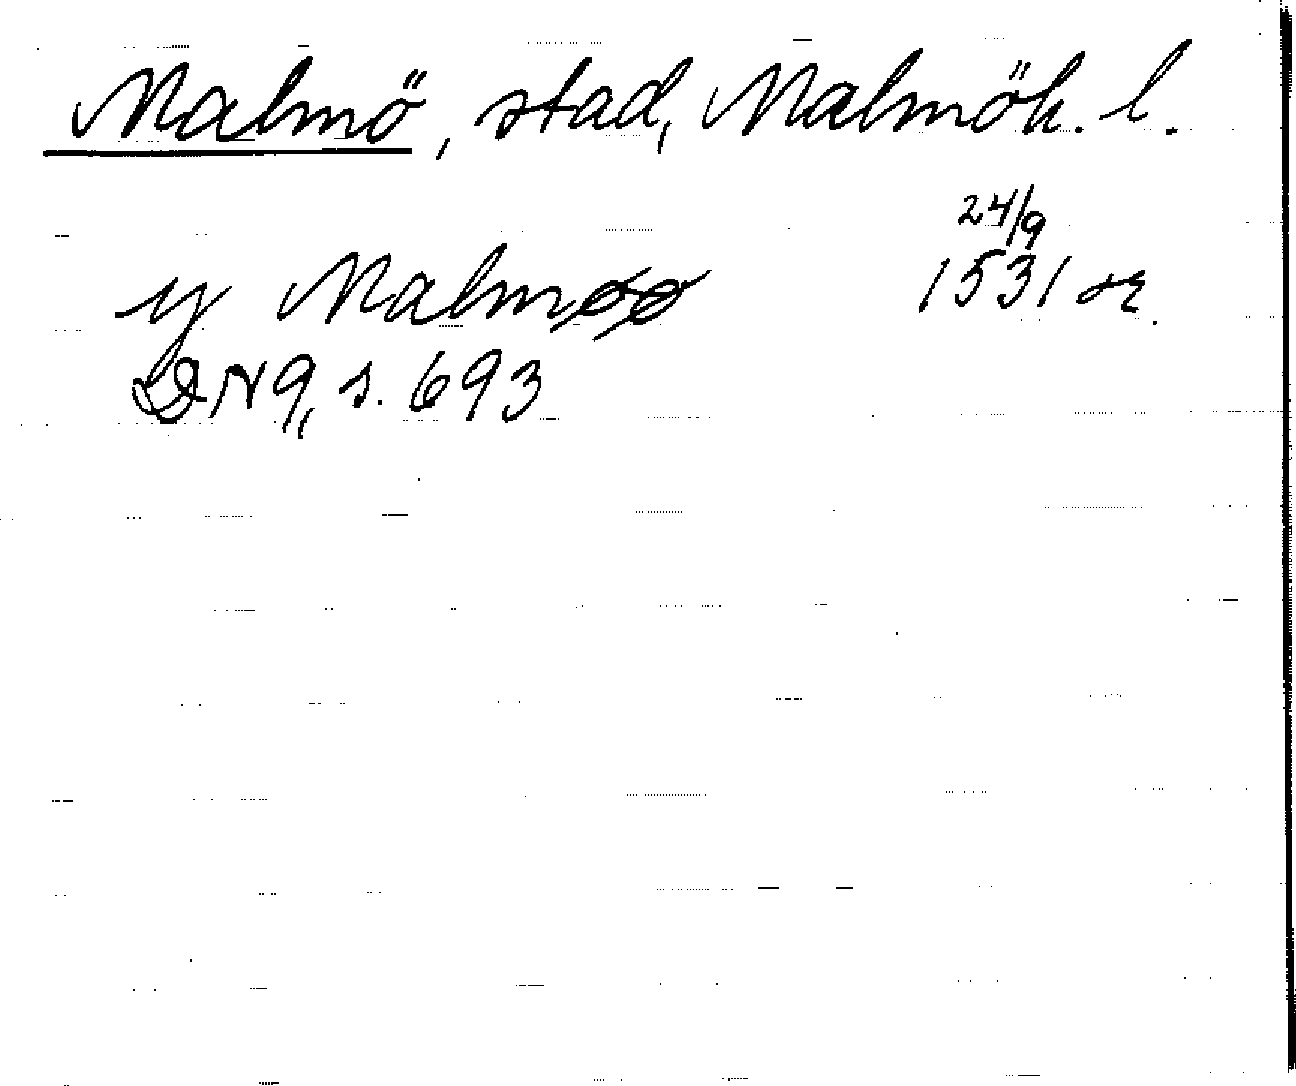 Malmö, stad, Malmöh. l.
24/9
y Malmøø 1531 or.
DN 9, s. 693